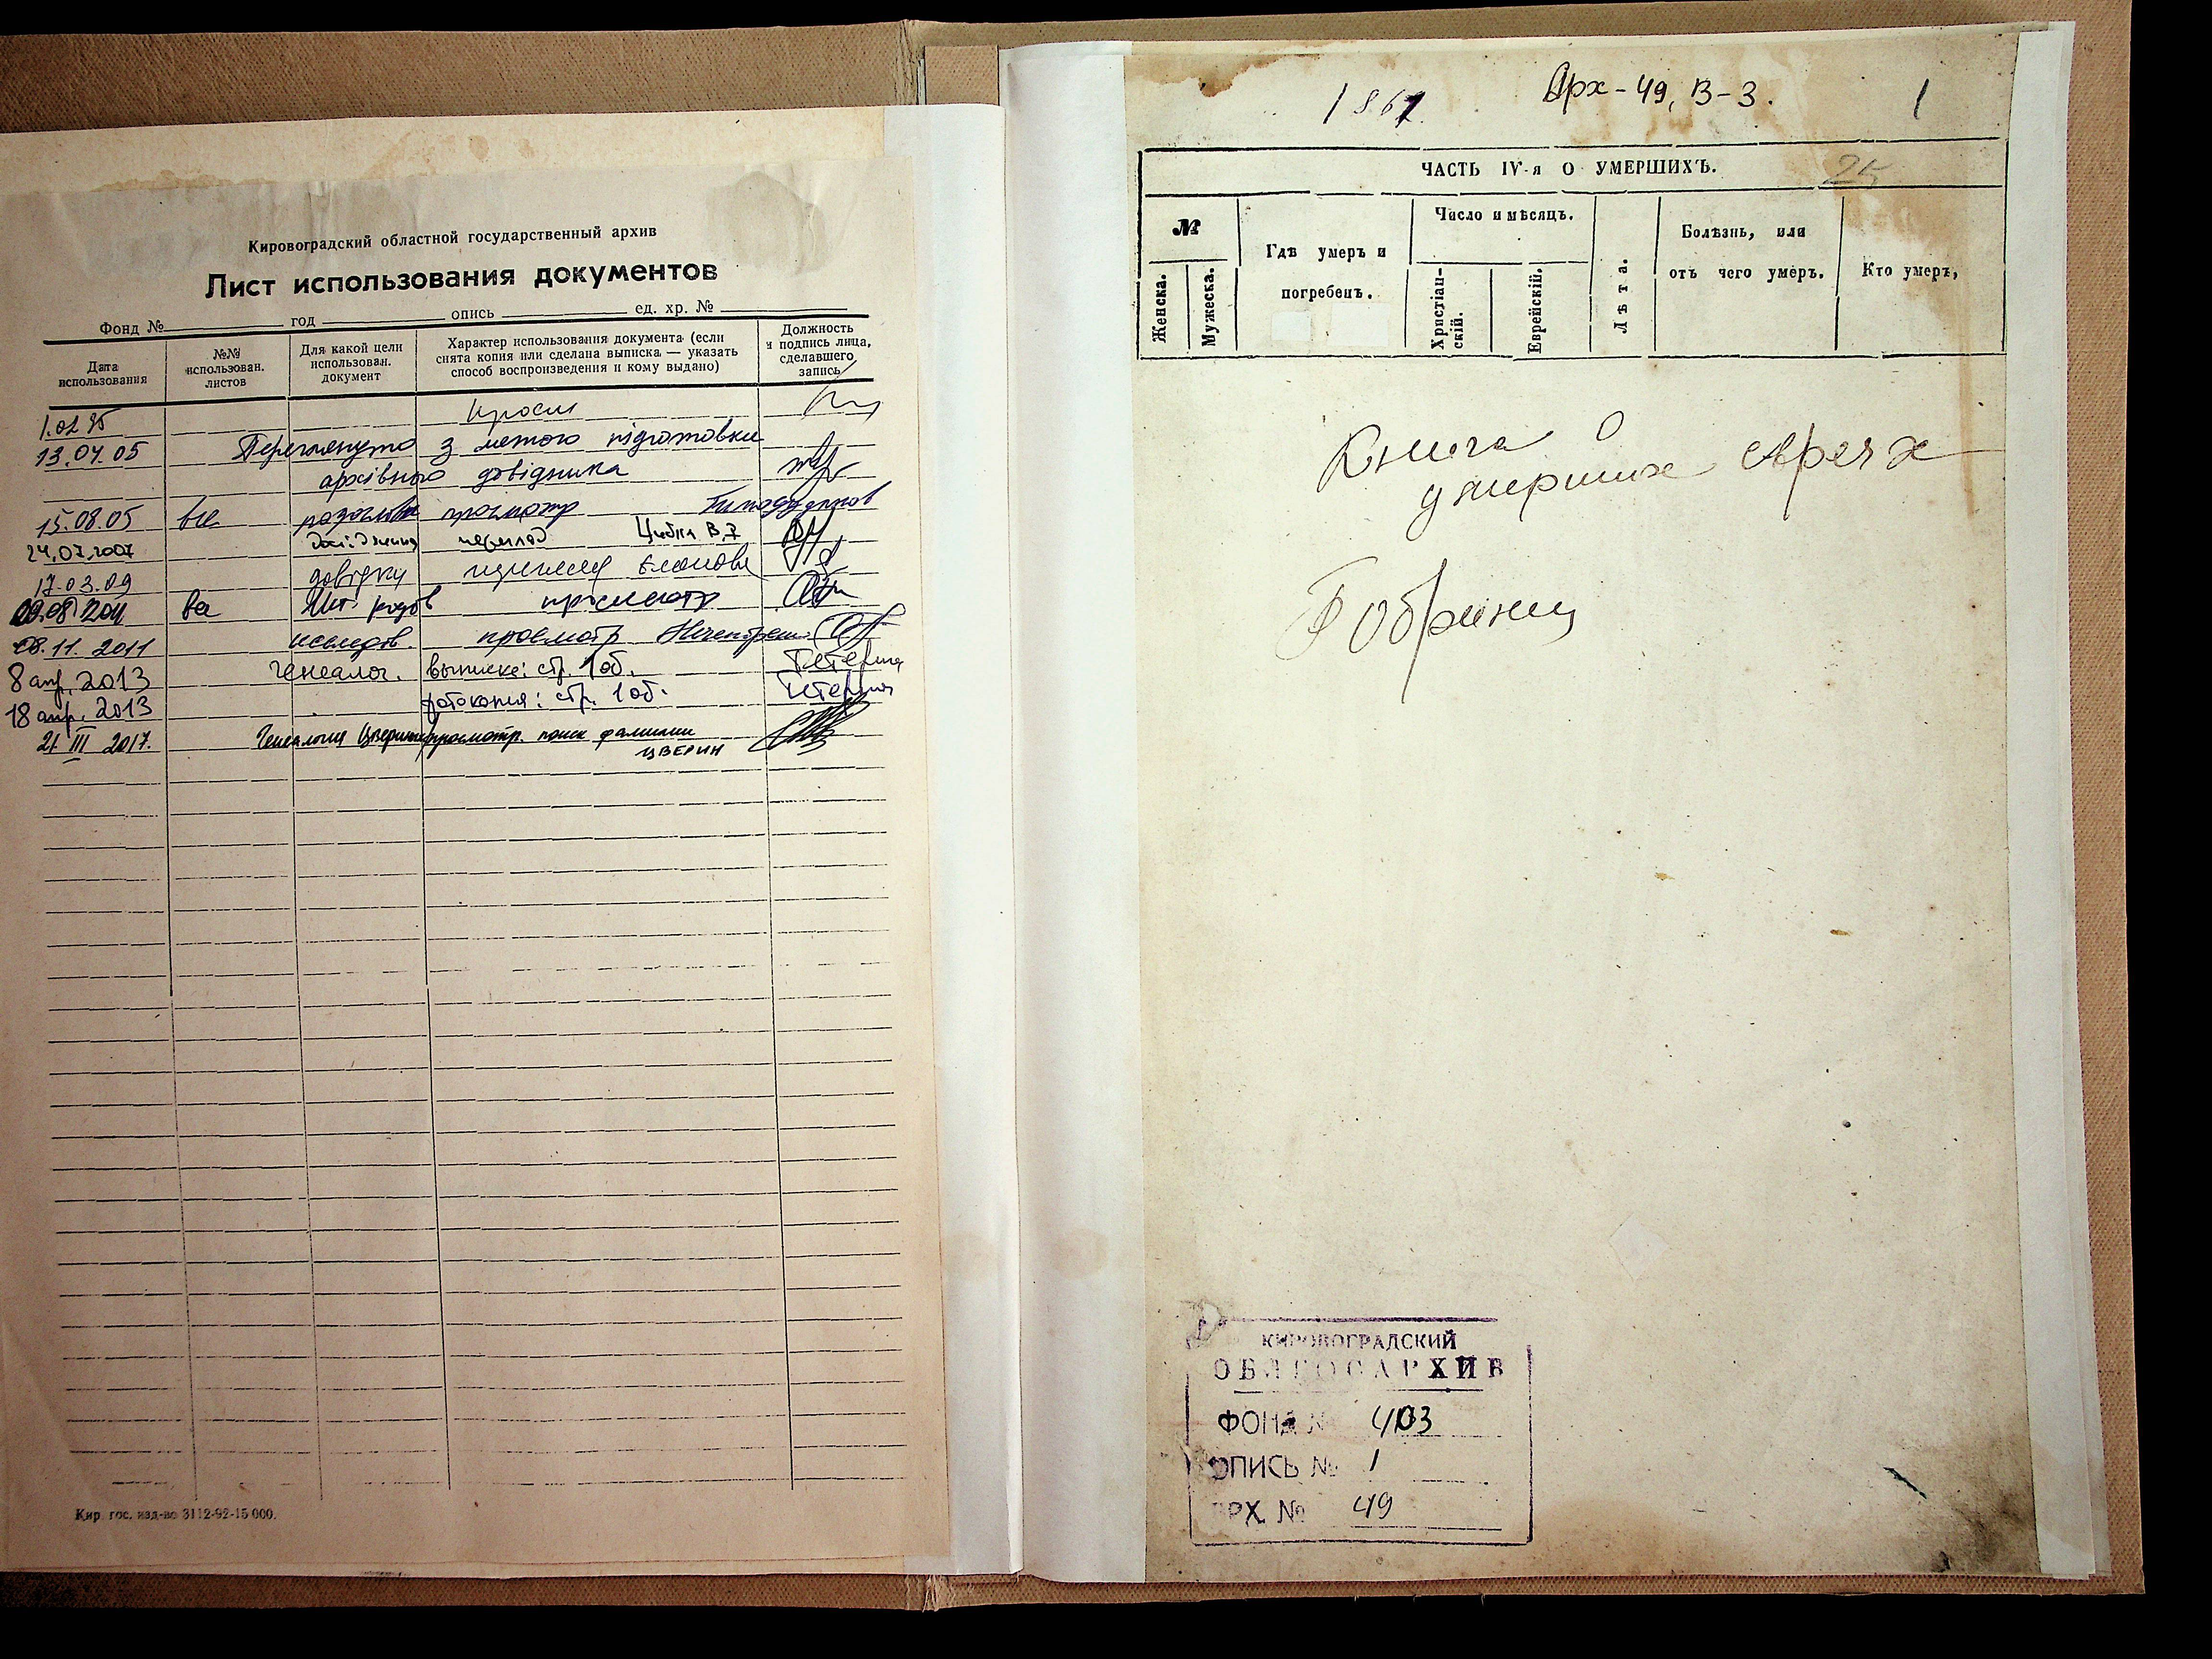 Кировоградский областной государственный архив
Лист использования документов
Фонд № год опись ед. хр. №
Дата использования
№№ использован. листов
Для какой цели использован. документ
Характер использования документа (если снята копия или сделана выписка — указать способ воспроизведения и кому выдано)
Должность и подпись лица, сделавшего запись
13.04.05 Переглянуто з метою підготовки
архівного довідника
15.08.05 все просмотр
24.07.2007 переклад
17.03.09 довідки
просмотр
08.11.2011 исследов. просмотр
8 апр. 2013 генеалог. выписке: стр. 1 об.
18 апр. 2013 фотокопия: стр. 1 об.
21 III 2017. Генеалогия просмотр. поиск фамилии
ЦВЕРИН
Кир. гос. изд-во 3112-92-15 000.
1867. Арх-49, В-3. 1
ЧАСТЬ IV-я О УМЕРШИХЪ.
№
Женска.
Мужеска.
Гдѣ умеръ и погребенъ.
Число и мѣсяцъ.
Христіан-скій.
Еврейскій.
Лѣта.
Болѣзнь, или отъ чего умеръ.
Кто умеръ,
Книга о
умерших Евреях
Бобринец
КИРОВОГРАДСКИЙ
ОБЛГОСАРХИВ
ФОНД № 403
ОПИСЬ № 1
АРХ. № 49